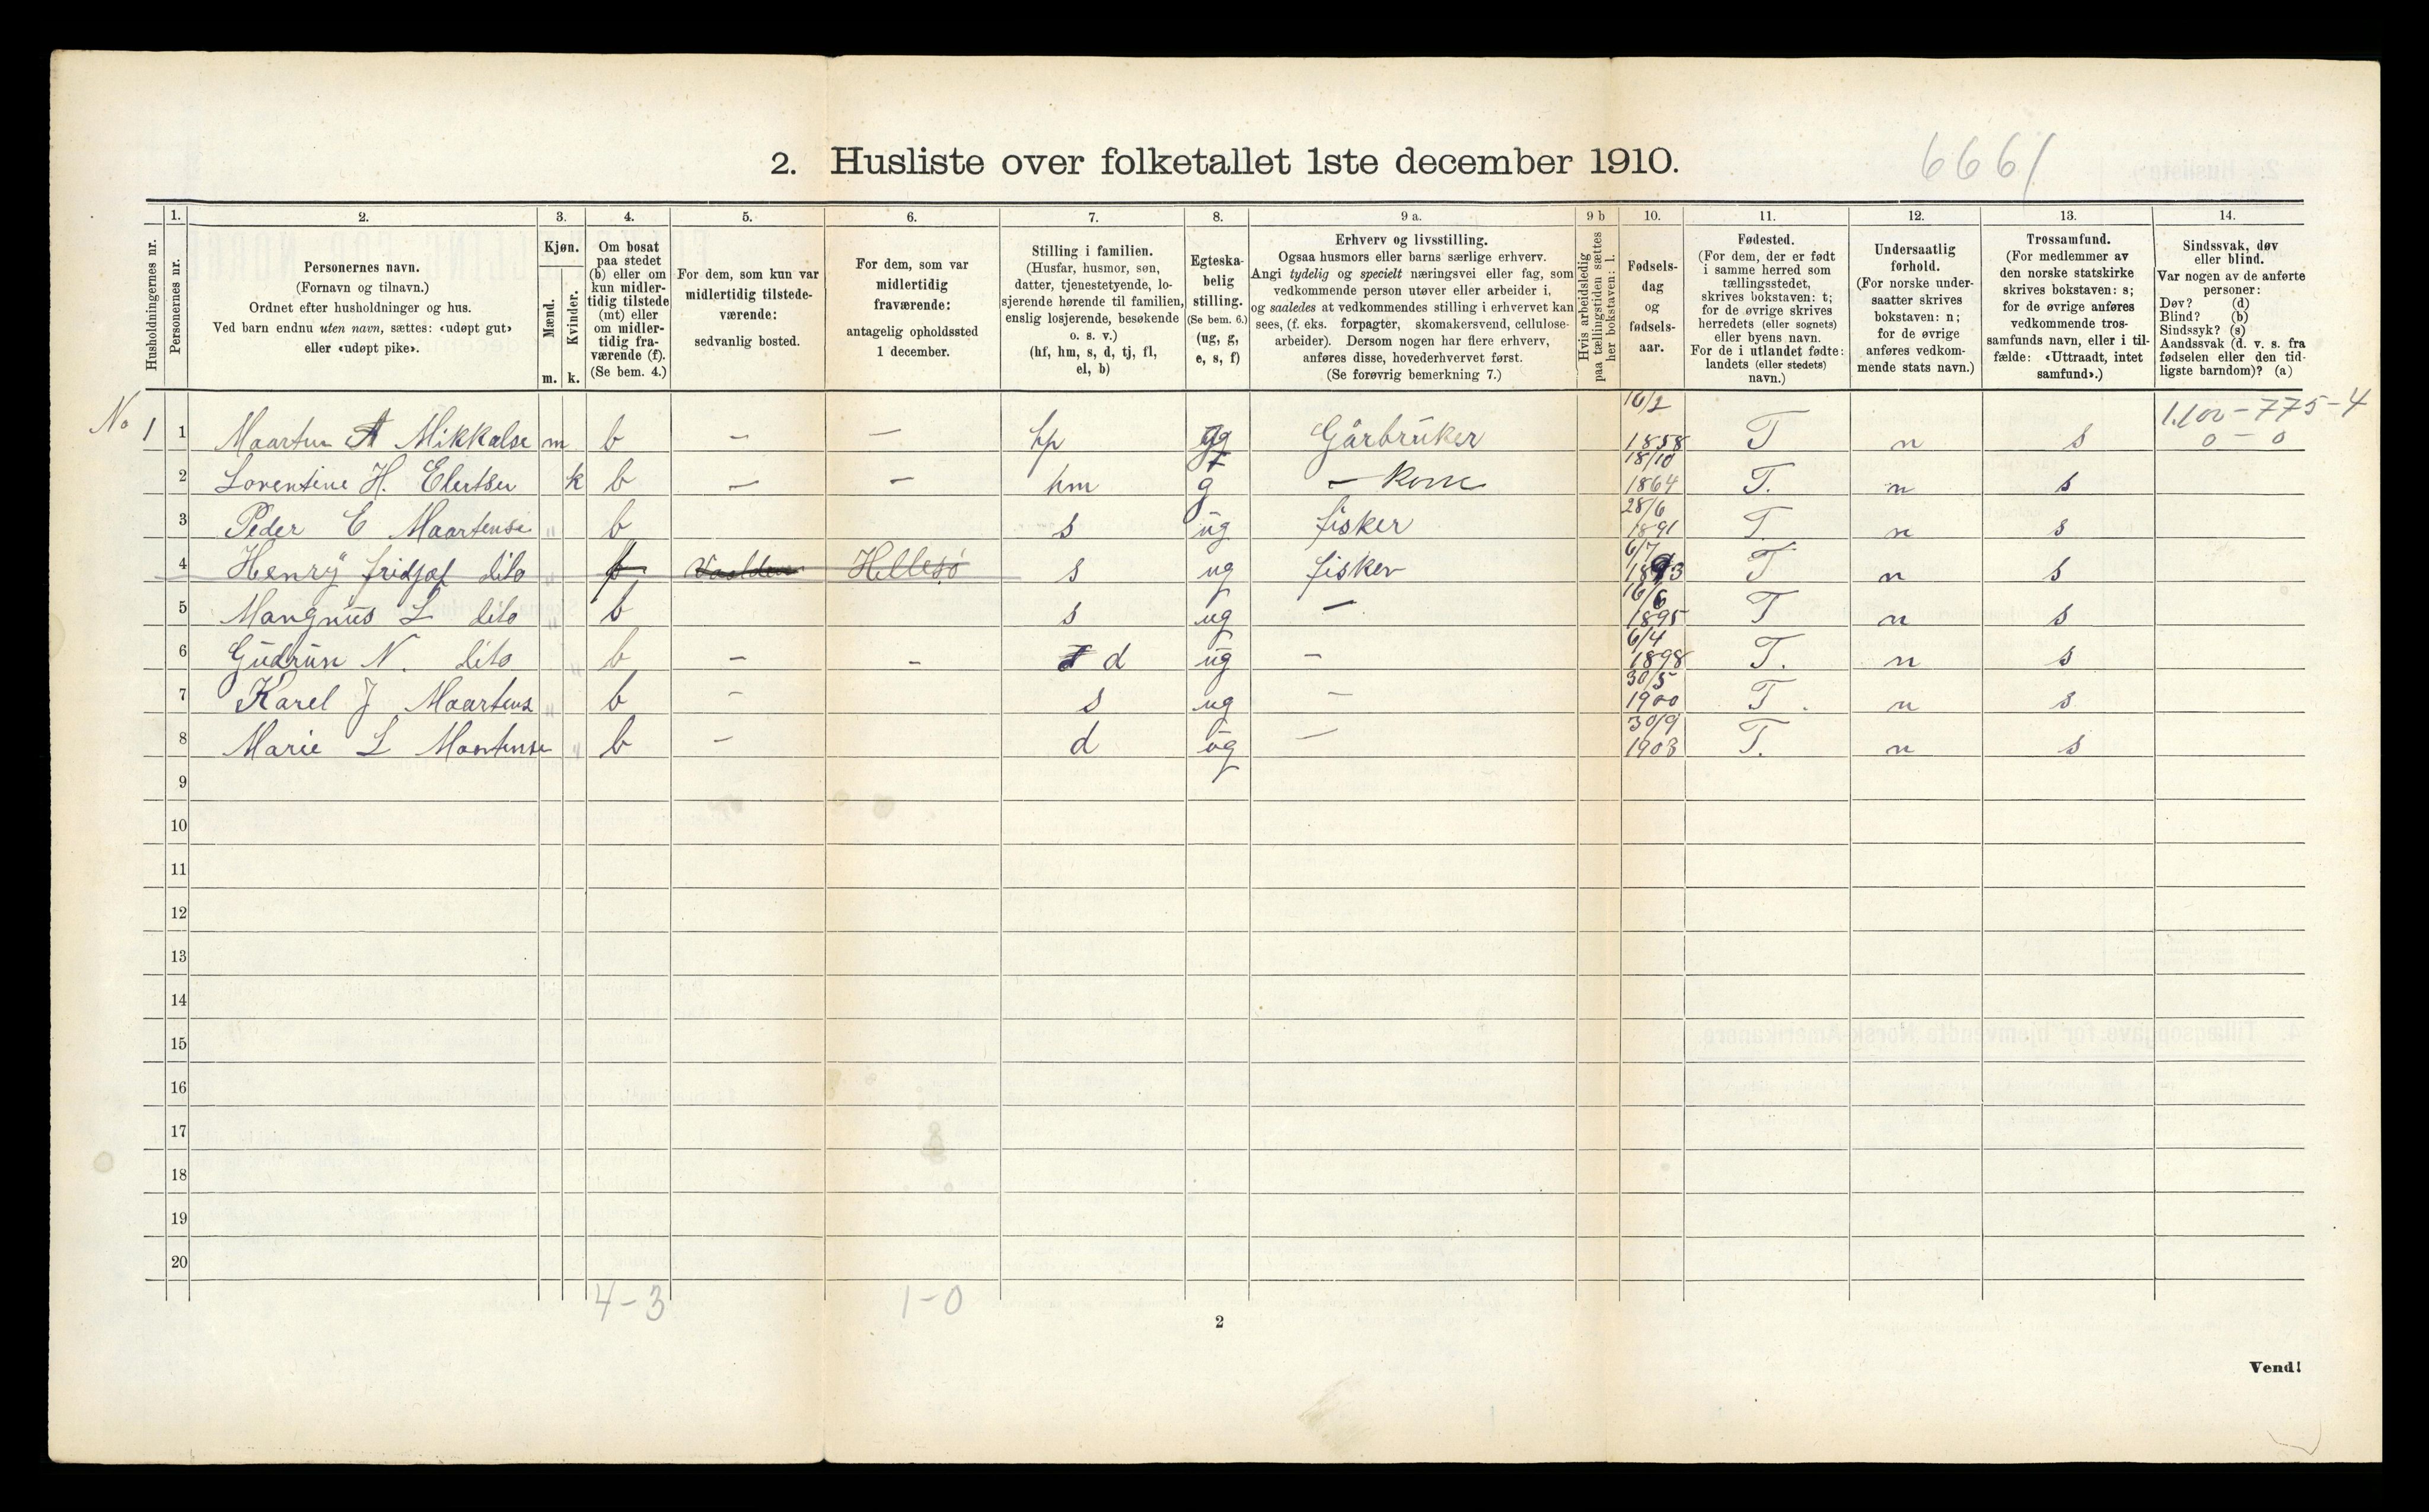 2. Husliste over folketallet 1ste december 1910.
6661
1. 2. 3. 4. 5. 6. 7. 8. 9 a. 9 b 10. 11. 12. 13. 14.
Husholdningernes nr.
Personernes nr.
Personernes navn.
(Fornavn og tilnavn.)
Ordnet efter husholdninger og hus.
Ved barn endnu uten navn, sættes: «udøpt gut»
eller «udøpt pike».
Kjøn.
Mænd.
Kvinder.
m. k.
Om bosat
paa stedet
(b) eller om
kun midler-
tidig tilstede
(mt) eller
om midler-
tidig fra-
værende (f).
(Se bem. 4.)
For dem, som kun var
midlertidig tilstede-
værende:
sedvanlig bosted.
For dem, som var
midlertidig
fraværende:
antagelig opholdssted
1 december.
Stilling i familien.
(Husfar, husmor, søn,
datter, tjenestetyende, lo-
sjerende hørende til familien,
enslig losjerende, besøkende
o. s. v.)
(hf, hm, s, d, tj, fl,
el, b)
Egteska-
belig
stilling.
(Se bem. 6.)
(ug, g,
e, s, f)
Erhverv og livsstilling.
Ogsaa husmors eller barns særlige erhverv.
Angi tydelig og specielt næringsvei eller fag, som
vedkommende person utøver eller arbeider i,
og saaledes at vedkommendes stilling i erhvervet kan
sees, (f. eks. forpagter, skomakersvend, cellulose-
arbeider). Dersom nogen har flere erhverv,
anføres disse, hovederhvervet først.
(Se forøvrig bemerkning 7.)
Hvis arbeidsledig
paa tællingstiden sættes
her bokstaven: l.
Fødsels-
dag
og
fødsels-
aar.
Fødested.
(For dem, der er født
i samme herred som
tællingsstedet,
skrives bokstaven: t;
for de øvrige skrives
herredets (eller sognets)
eller byens navn.
For de i utlandet fødte:
landets (eller stedets)
navn.)
Undersaatlig
forhold.
(For norske under-
saatter skrives
bokstaven: n;
for de øvrige
anføres vedkom-
mende stats navn.)
Trossamfund.
(For medlemmer av
den norske statskirke
skrives bokstaven: s;
for de øvrige anføres
vedkommende tros-
samfunds navn, eller i til-
fælde: «Uttraadt, intet
samfund».)
Sindssvak, døv
eller blind.
Var nogen av de anførte
personer:
Døv? (d)
Blind? (b)
Sindssyk? (s)
Aandssvak (d. v. s. fra
fødselen eller den tid-
ligste barndom)? (a)
1.100-775-4
0-0
No 1 1 Maarten A Mikkalse m b - - hp g Gårbruker 16/2 1858 T n s
2 Lorentine H. Elertsen k b - - hm g - Kone 18/10 1864 T. n s
3 Peder C Maartense " b s ug fisker 28/6 1891 T. n s
4 Henry fridjof dito " f Hillesø s ug fisker 6/7 1893 T n s
5 Mangnus L dito " b s ug - 16/6 1895 T n s
6 Gudrun N. dito " b - - d ug - 6/4 1898 T. n s
7 Karel J Maartens " b - s ug - 30/5 1900 T. n s
8 Marie L Maartense " b - d ug - 30/9 1903 T. n s
9
10
11
12
13
14
15
16
17
18
19
20
4-3 1-0
2
Vend!